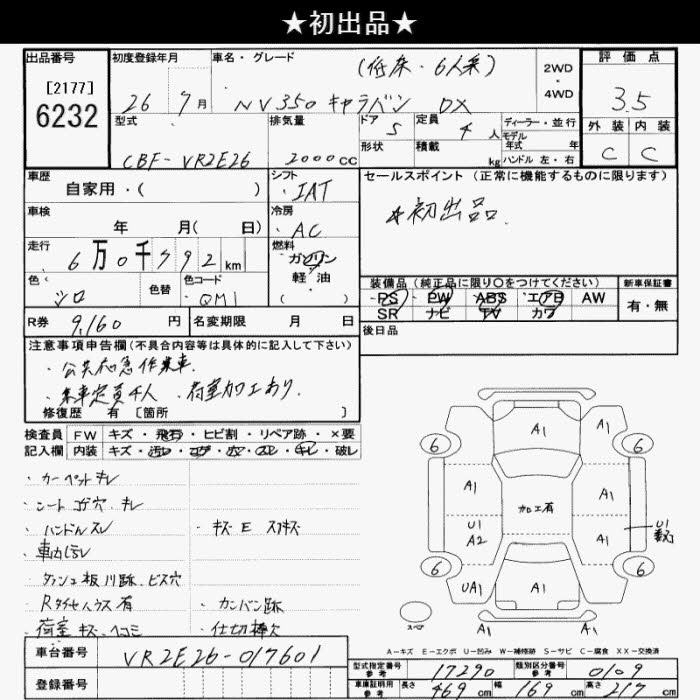 ★初出品★
出品番号
[2177]
6232
初度登録年月
26 7月
車名・グレード
(低床・6人乗)
NV350 キャラバン DX
2WD
・
4WD
評価点
3.5
外装 内装
C C
型式
CBF-VR2E26
排気量
2000cc
ドア 5
形状
定員 4人
積載 kg
ディーラー・並行
モデル年式 年
ハンドル 左・右
車歴
自家用・( )
シフト
IAT
セールスポイント(正常に機能するものに限ります)
☆初出品.
車検
年 月( 日)
冷房
AC
走行
6万0千792km
燃料
ガソリン
軽油
( )
色
シロ
色替
色コード
QM1
装備品(純正品に限り○をつけてください)
PS PW ABS エアB AW
SR ナビ TV カワ
新車保証書
有・無
R券 9,160円
名変期限 月 日
後日品
注意事項申告欄(不具合内容等は具体的に記入して下さい)
・公共応急作業車.
・乗車定員4人 荷室加工あり.
修復歴 有 [箇所 ]
検査員 FW キズ・飛石・ヒビ割・リペア跡・×要
記入欄 内装 キズ・汚レ・コゲ・穴・スレ・キレ・破レ
・カーペットキレ
・シートコゲ穴 キレ
・ハンドルスレ
・キズE スリキズ
・車内汚レ
・ダッシュ板 川跡 ビス穴
・Rタイヤハウス有
・カンバン跡
・荷室キズ・ヘコミ
・仕切棒欠
6 A1 A1 A1 6
A1 加工有 A1
U1
A2 A1 U1
6 6
UA1 A1 A1
A1 A1
スペア
A-キズ E-エクボ U-凹み W-補修跡 S-サビ C-腐食 XX-交換済
車台番号 VR2E26-017601
登録番号
型式指定番号
参考
17290
類別区分番号
参考
0109
車庫証明用
参考
長さ 469cm 幅 169cm 高さ 217cm